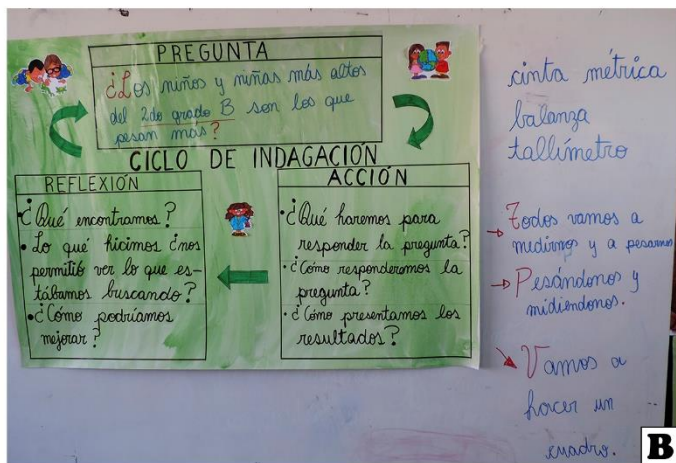 PREGUNTA
¿Los niños y niñas más altos
del 2do grado B son los que
pesan más?
CICLO DE INDAGACIÓN
REFLEXIÓN
• ¿Qué encontramos?
• Lo qué hicimos ¿nos
permitió ver lo que es-
tábamos buscando?
• ¿Cómo podríamos
mejorar?
ACCIÓN
• ¿Qué haremos para
responder la pregunta?
• ¿Cómo responderemos la
pregunta?
• ¿Cómo presentamos los
resultados?
cinta métrica
balanza
tallímetro
→ Todos vamos a
medirnos y a pesarnos
→ Pesándonos y
midiéndonos.
→ Vamos a
hacer un
cuadro.
B